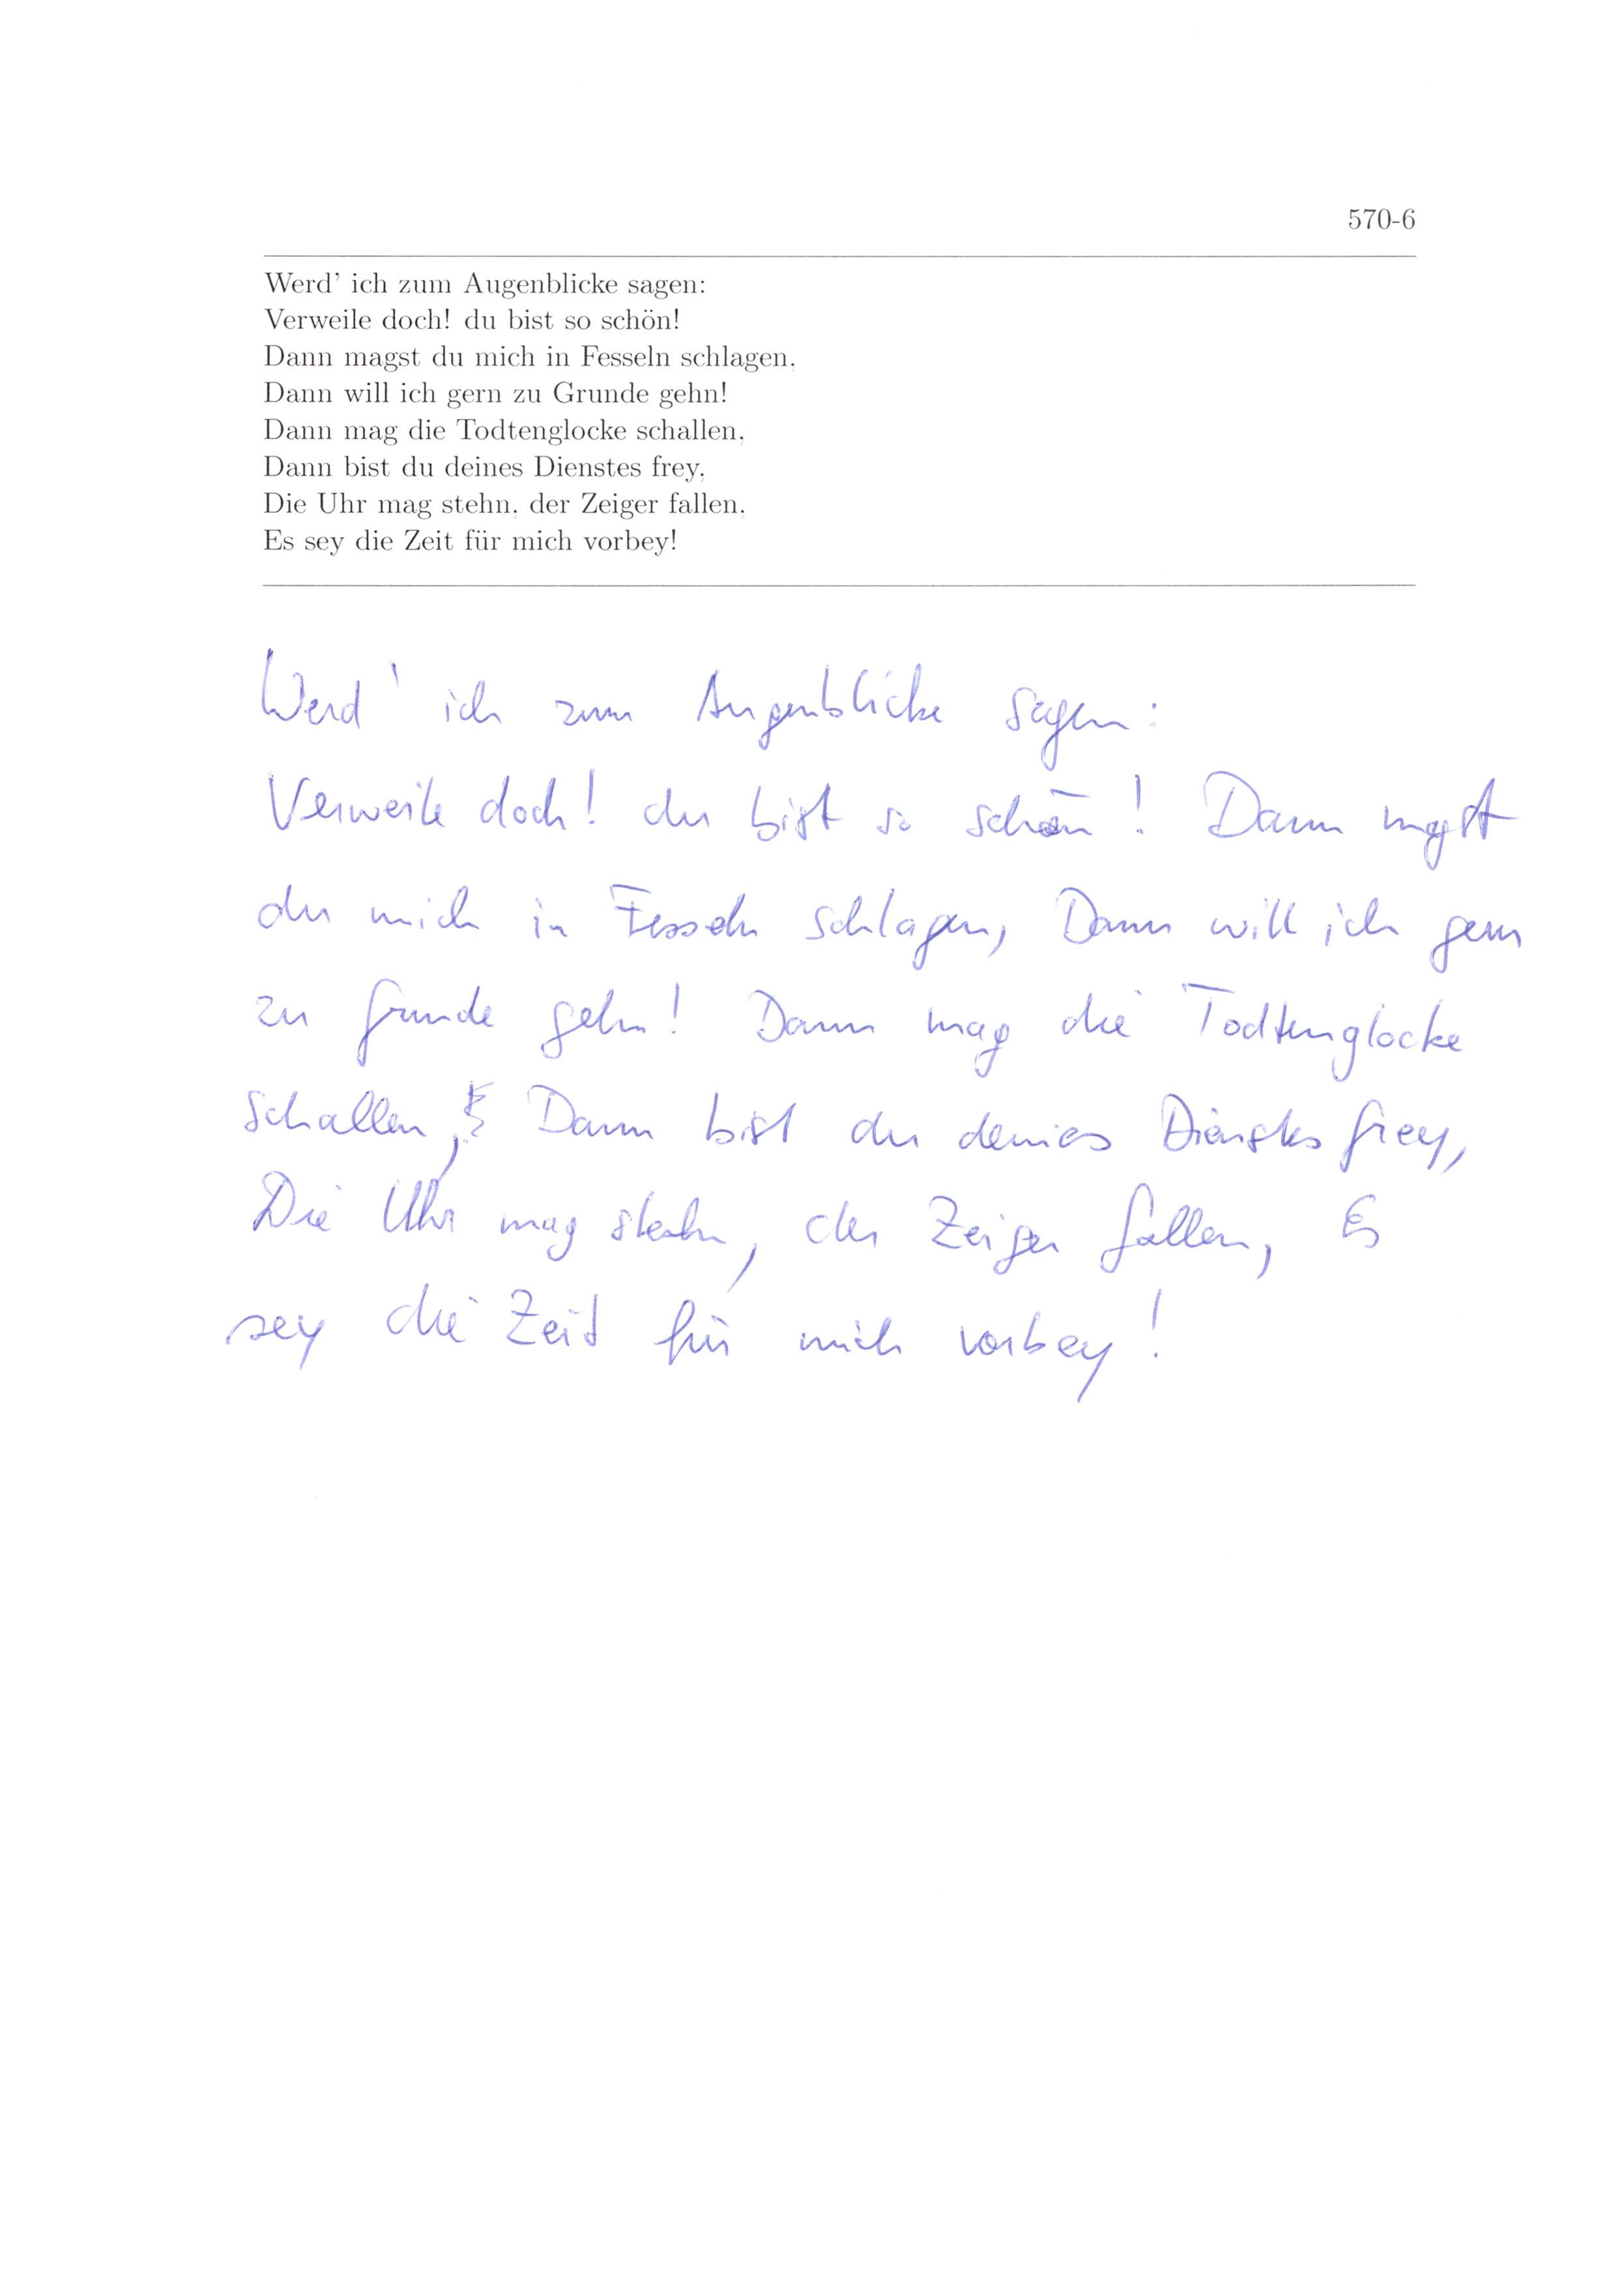 570-6
Werd' ich zum Augenblicke sagen:
Verweile doch! du bist so schön!
Dann magst du mich in Fesseln schlagen,
Dann will ich gern zu Grunde gehn!
Dann mag die Todtenglocke schallen,
Dann bist du deines Dienstes frey,
Die Uhr mag stehn, der Zeiger fallen,
Es sey die Zeit für mich vorbey!
Werd' ich zum Augenblicke sagen:
Verweile doch! du bist so schön! Dann magst
du mich in Fesseln schlagen, Dann will ich gern
zu Grunde gehn! Dann mag die Todtenglocke
schallen, Dann bist du deines Dienstes frey,
Die Uhr mag stehn, der Zeiger fallen, Es
sey die Zeit für mich vorbey!